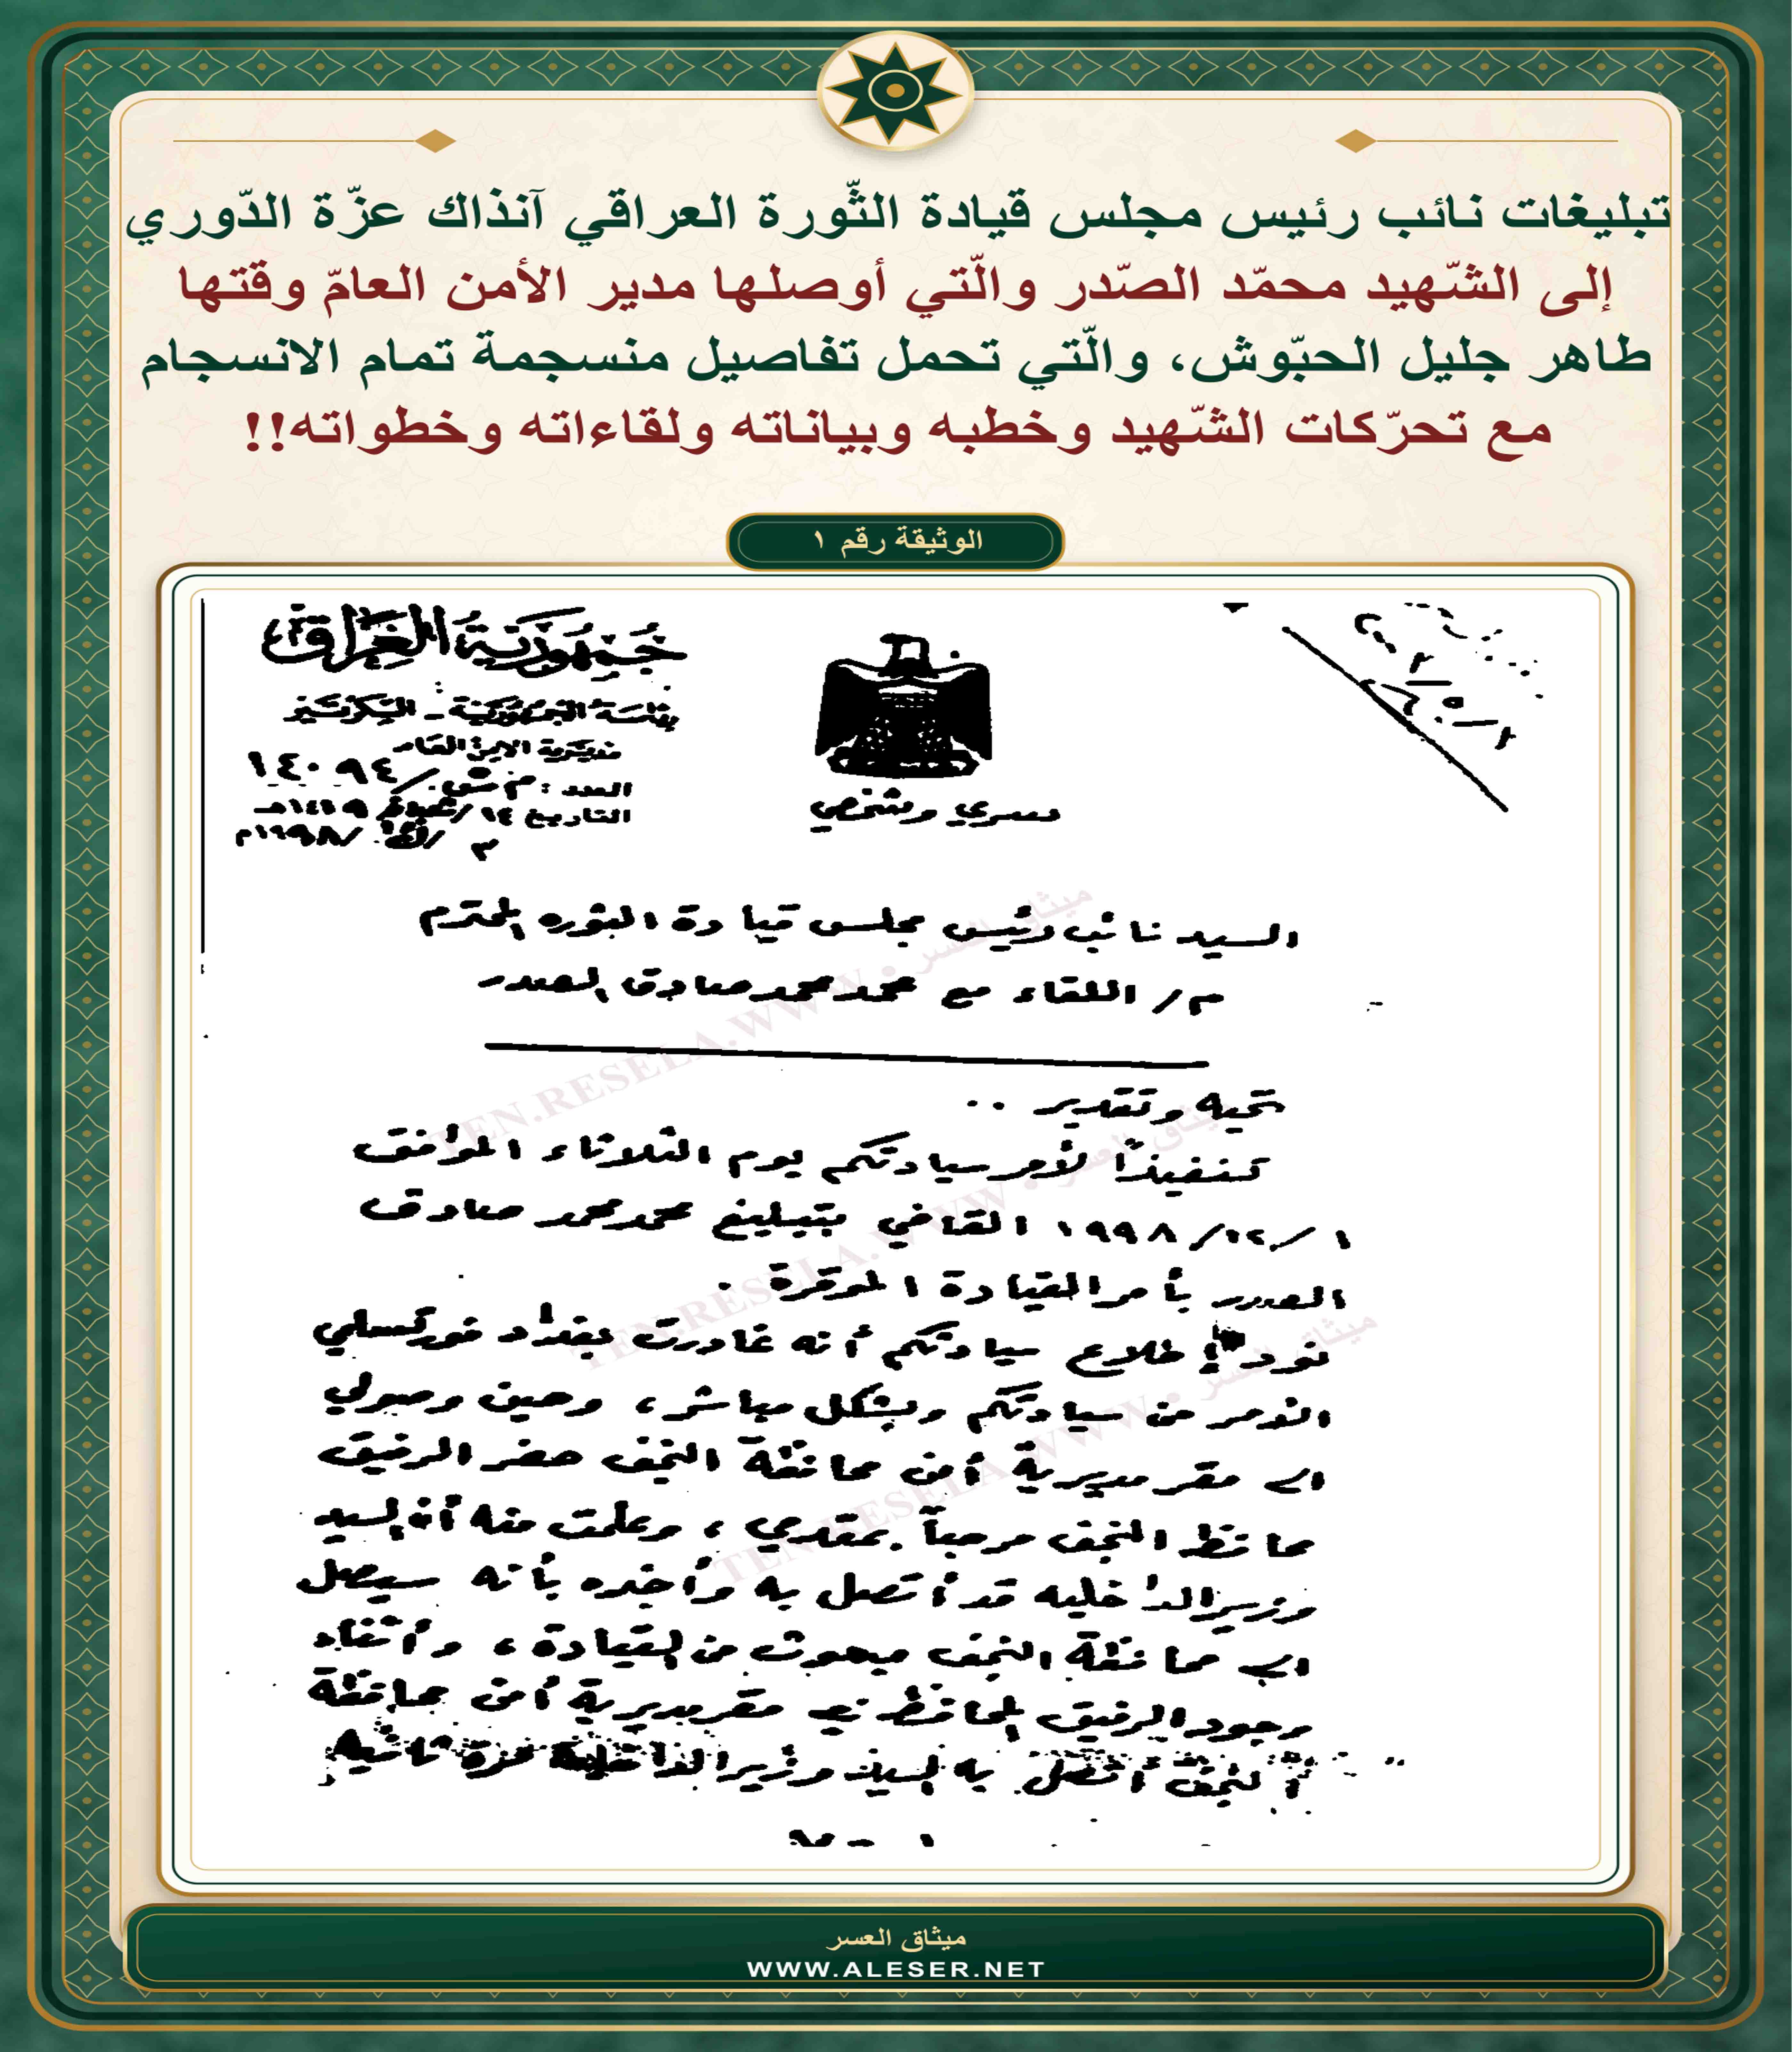 تبليغات نائب رئيس مجلس قيادة الثّورة العراقي آنذاك عزّة الدّوري
إلى الشّهيد محمّد الصّدر والّتي أوصلها مدير الأمن العامّ وقتها
طاهر جليل الحبّوش، والّتي تحمل تفاصيل منسجمة تمام الانسجام
مع تحرّكات الشّهيد وخطبه وبياناته ولقاءاته وخطواته!!
الوثيقة رقم ١
جمهورية العراق
رئاسة الجمهورية - السكرتير
مديرية الأمن العامة
العدد : م ش / ١٤٠٩٤
التاريخ ١٤ / شعبان / ١٤١٩هـ
٣ / ك١ / ١٩٩٨م
سري وشخصي
السيد نائب رئيس مجلس قيادة الثوره المحترم
م/ اللقاء مع محمد محمد صادق الصدر
تحيه وتقدير ..
تنفيذاً لأمر سيادتكم يوم الثلاثاء الموافق
١/١٢/١٩٩٨ القاضي بتبليغ محمد محمد صادق
الصدر بأمر القيادة الموقرة .
نود إطلاع سيادتكم أنه غادرت بغداد فور تسلمي
الأمر من سيادتكم وبشكل مباشر، وحين وصولي
الى مقر مديرية أمن محافظة النجف حضر الرفيق
محافظ النجف مرحباً بمقدمي ، وعلمت منه أن السيد
وزير الداخليه قد أتصل به وأخبره بأنه سيصل
الى محافظة النجف مبعوث من القيادة ، وأثناء
وجود الرفيق المحافظ في مقر مديرية أمن محافظة
النجف أتصل به السيد وزير الداخلية مرة ثانيه
ميثاق العسر • WWW.ALESER.NET
ميثاق العسر • WWW.ALESER.NET
ميثاق العسر • WWW.ALESER.NET
ميثاق العسر
WWW.ALESER.NET